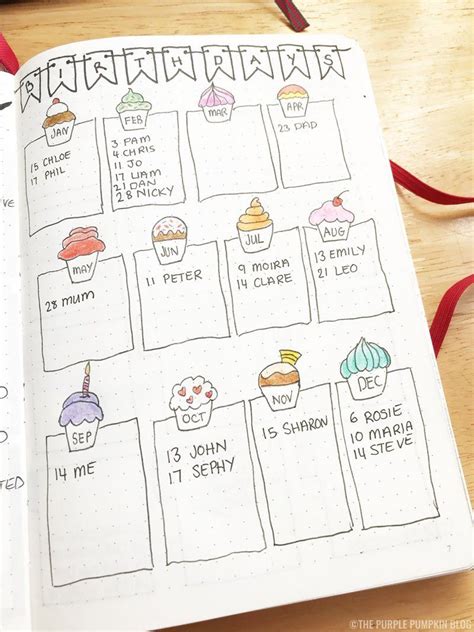 BIRTHDAYS
JAN
15 CHLOE
17 PHIL
FEB
3 PAM
4 CHRIS
11 JO
17 LIAM
21 DAN
28 NICKY
MAR
APR
23 DAD
MAY
28 MUM
JUN
11 PETER
JUL
9 MOIRA
14 CLARE
AUG
13 EMILY
21 LEO
SEP
14 ME
OCT
13 JOHN
17 SEPHY
NOV
15 SHARON
DEC
6 ROSIE
10 MARIA
14 STEVE
7
©THE PURPLE PUMPKIN BLOG